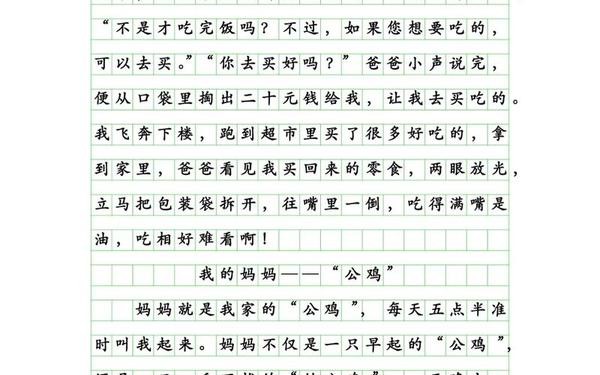 “不是才吃完饭吗？不过，如果您想要吃的，
可以去买。”“你去买好吗？”爸爸小声说完，
便从口袋里掏出二十元钱给我，让我去买吃的。
我飞奔下楼，跑到超市里买了很多好吃的，拿
到家里，爸爸看见我买回来的零食，两眼放光，
立马把包装袋拆开，往嘴里一倒，吃得满嘴是
油，吃相好难看啊！
我的妈妈——“公鸡”
妈妈就是我家的“公鸡”，每天五点半准
时叫我起来。妈妈不仅是一只早起的“公鸡”，